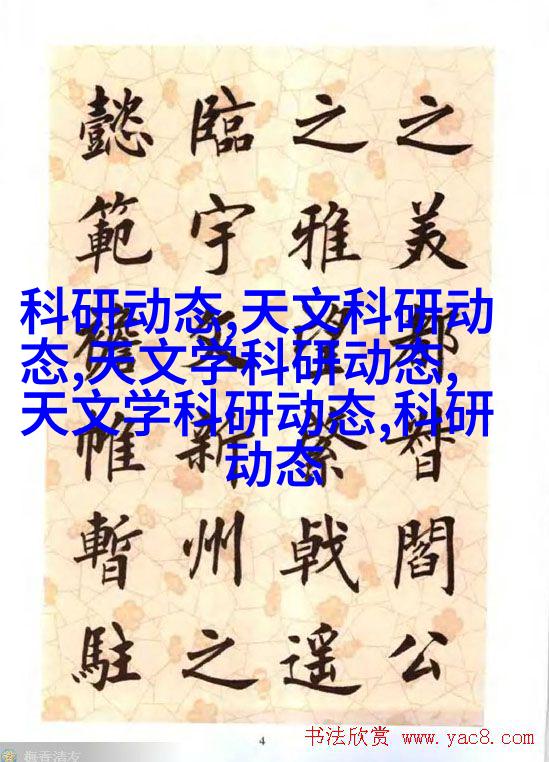 之美都督閻公
之雅望棨戟遥
臨宇文新州之
懿範襜帷暫駐
科研动态,天文科研动
态,天文学科研动态,
天文学科研动态,科研
动态
4
书法欣赏 www.yac8.com